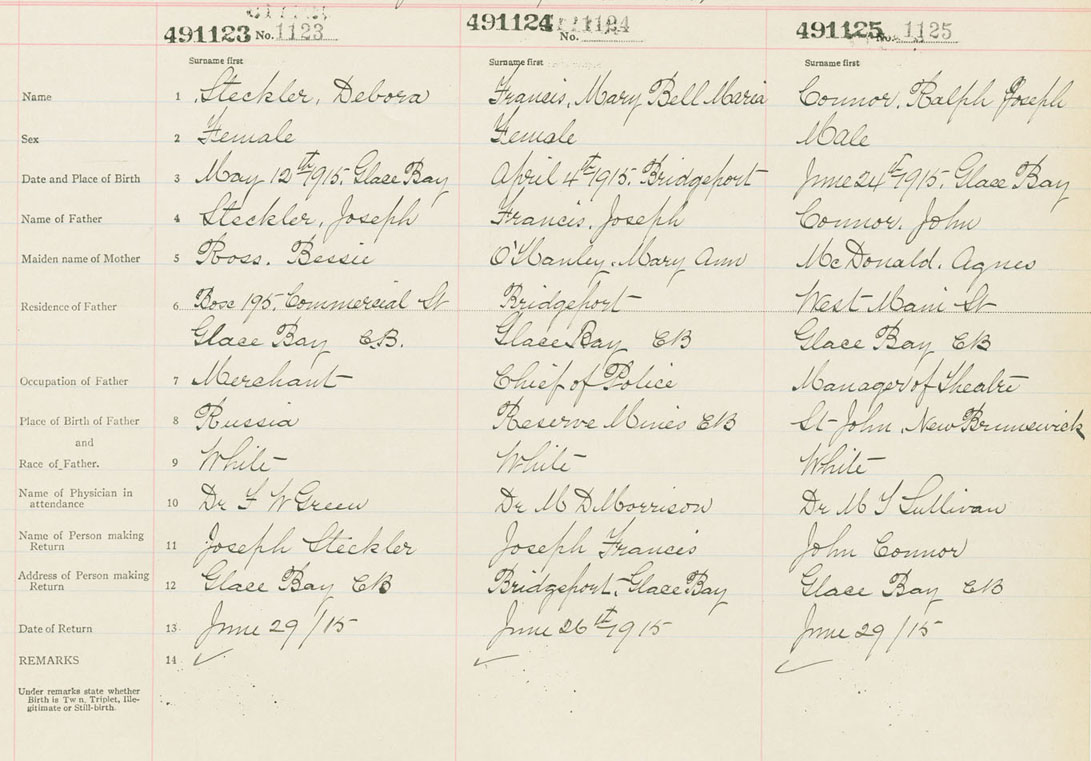 491123 No. 1123 491124 No. 1124 491125 No. 1125
Surname first Surname first Surname first
Name 1 Steckler, Debora Francis, Mary Bell Maria Connor, Ralph Joseph
Sex 2 Female Female Male
Date and Place of Birth 3 May 12th 1915. Glace Bay April 4th 1915. Bridgeport June 24th 1915. Glace Bay
Name of Father 4 Steckler, Joseph Francis, Joseph Connor, John
Maiden name of Mother 5 Ross. Bessie O'Hanley, Mary Ann McDonald. Agnes
Residence of Father 6 195. Commercial St Bridgeport West Main St
Glace Bay C.B. Glace Bay CB Glace Bay CB
Occupation of Father 7 Merchant Chief of Police Manager of Theatre
Place of Birth of Father 8 Russia Reserve Mines CB St John, New Brunswick
and
Race of Father. 9 White White White
Name of Physician in
attendance 10 Dr F W Green Dr M D Morrison Dr M T Sullivan
Name of Person making
Return 11 Joseph Steckler Joseph Francis John Connor
Address of Person making
Return 12 Glace Bay CB Bridgeport, Glace Bay Glace Bay CB
Date of Return 13 June 29/15 June 26th 1915 June 29/15
REMARKS 14
Under remarks state whether
Birth is Tw n, Triplet, Ille-
gitimate or Still-birth.